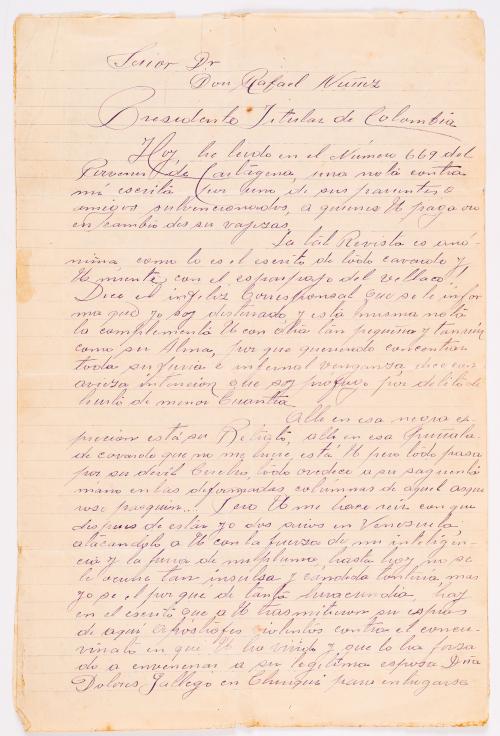 Señor Dr
Don Rafael Nuñez
Presidente Titular de Colombia
Hoy he leido en el Número 669 del
Porvenir de Cartagena, una nota contra
mi escrita por uno de sus parientes o
amigos subvencionados, a quienes U paga oro
en cambio de sus vajezas
La tal Revista es anó-
nima como lo es el escrito de todo cavarde y
U miente con el desparpajo del vellaco!
Dice el infeliz Corresponsal que se le infor
ma que yo soy desterrado y está misma nota
la complementa U con otra tan pequeña y tan ruin
como su Alma, por que queriendo concentrar
toda su furia e infernal venganza dice con
aviesa intencion que soy profugo por delito de
hurto de menor Cuantia.
Alli en esa negra es-
presion está su Retrato, alli en esa puñala-
da covarde que no me hiere, está U pero todo pasa
por su devil Cuello, todo ovedece a su
mano en las deformadas columnas de aquel asque
roso pasquin..! Pero U me hace reir con que
despues de estar yo dos años en Venezuela
atacandolo a U con la fuerza de mi inteligen-
cia y la furia de mi pluma, hasta hoy no se
le ocurre tan insulsa y candida tonteria, mas
yo se el por que de tanta iracundia, hay
en el escrito que a U trasmitieron sus espias
de aqui apóstrofes violentos contra el concu-
vinato en que U ha vivido y que lo ha forza
do a envenenar a su legitima esposa Dña
Dolores Gallego en Chiriqui para entregarse